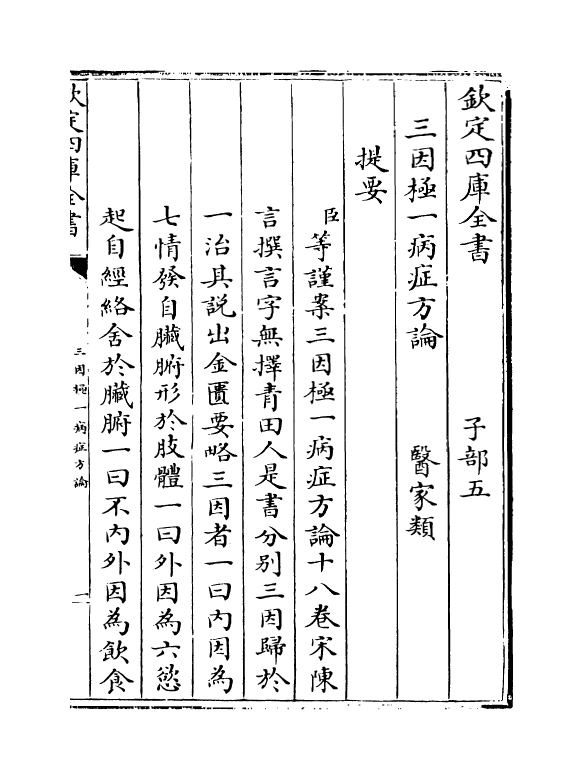 欽定四庫全書　子部五
三因極一病症方論　醫家類
提要
臣等謹案三因極一病症方論十八卷宋陳
言撰言字無擇青田人是書分别三因歸於
一治其説出金匱要略三因者一曰内因為
七情發自臟腑形於肢體一曰外因為六慾
起自經絡舍於臟腑一曰不内外因為飲食
欽定四庫全書
三因極一病症方論
一